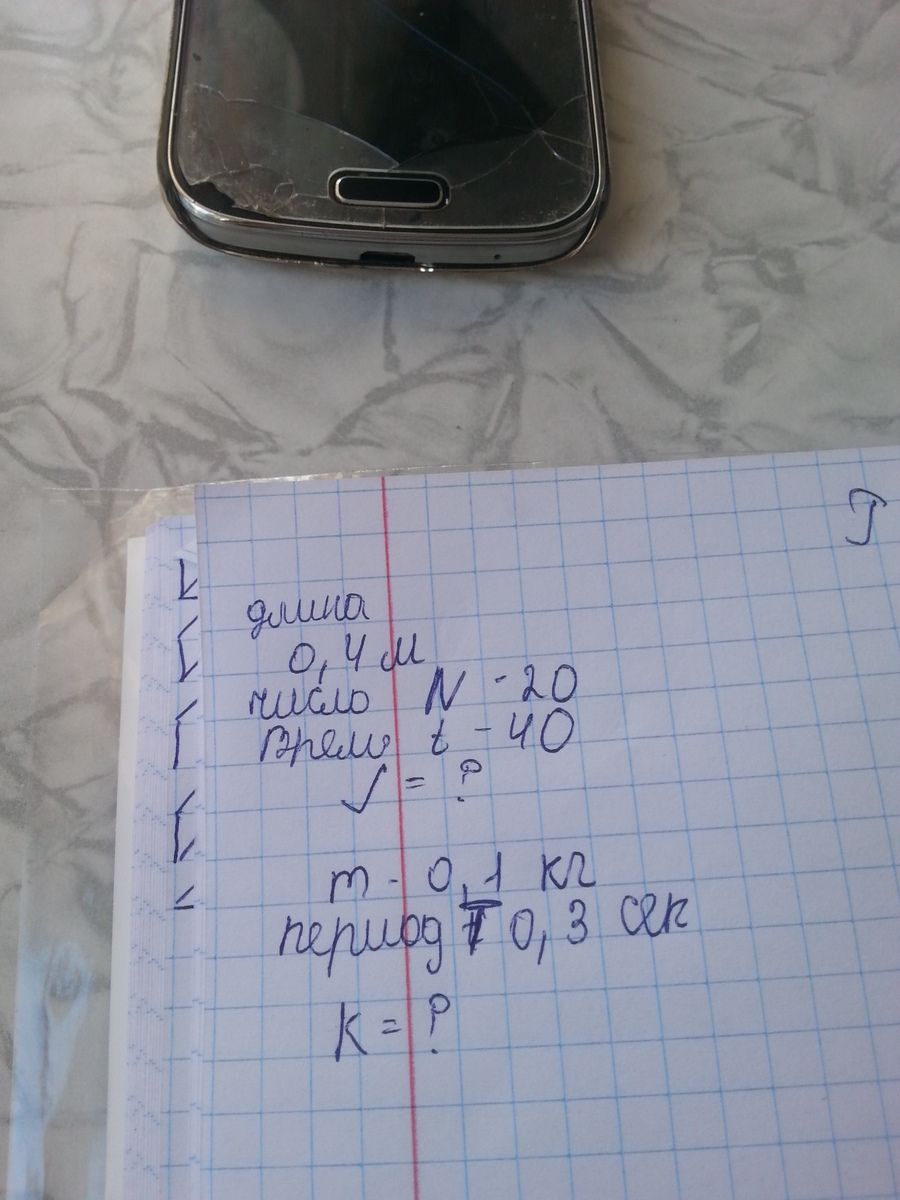 длина
0,4 м
число N - 20
Время t - 40
= ?
m - 0,1 кг
период T 0,3 сек
K = ?